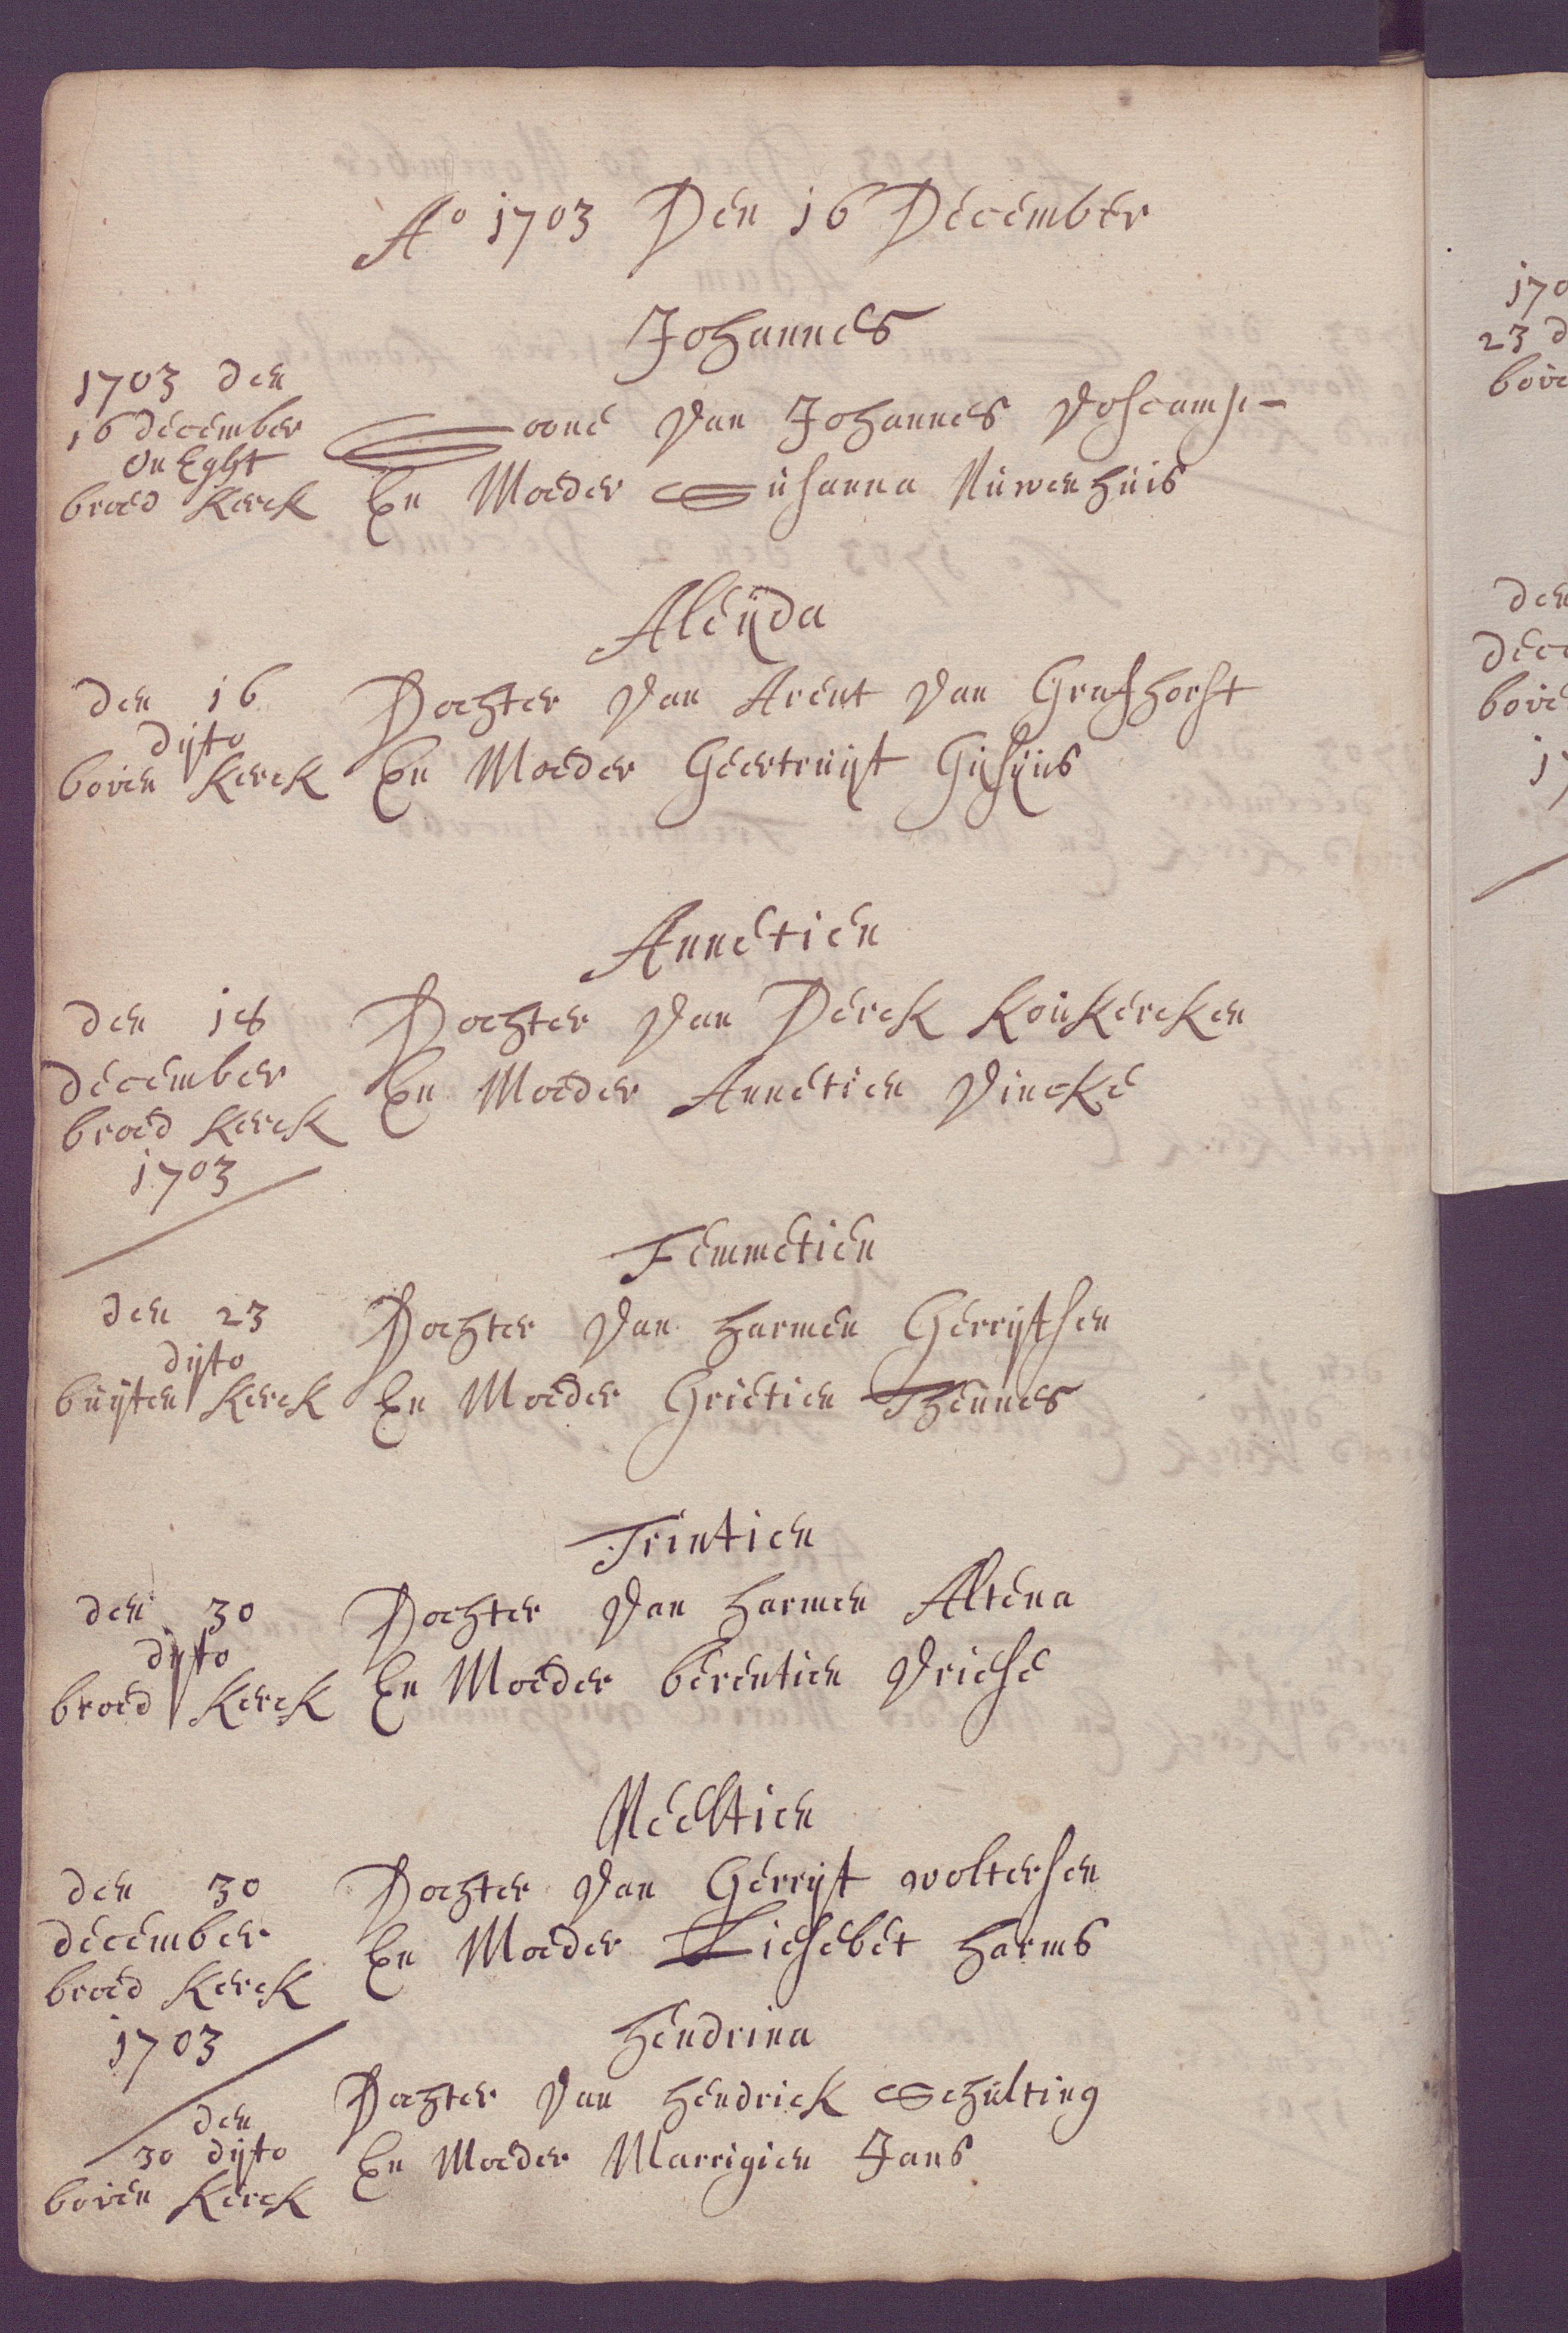 Ao 1703 Den 16 December
Johannes
1703 den
16 december
On Eght
broed Kerck
Soone Van Johannes Voscamp
En Moeder Susanna Nuwenhuis
Aleyda
den 16
dyto
boven Kerck
Dochter Van Arent Van Grafhorst
En Moeder Geertruyt
Annetien
den 18
december
broed Kerck
1703
Dochter Van Derck Koukercken
En Moeder Annetien Vincke
Femmetien
den 23
dyto
buyten Kerck
Dochter Van harmen Gerrytsen
En Moeder Grietien Theunes
Trintien
den 30
dyto
broed Kerck
Dochter Van harmen Altena
En Moeder berentien Vriese
Neeltien
den 30
december
broed Kerck
1703
Dochter Van Gerryt woltersen
En Moeder Liesebet harms
hendrina
den
30 dyto
boven Kerck
Dochter Van hendrick Schulting
En Moeder Marrigien Jans
170
23 d
bove
den
dece
bove
17